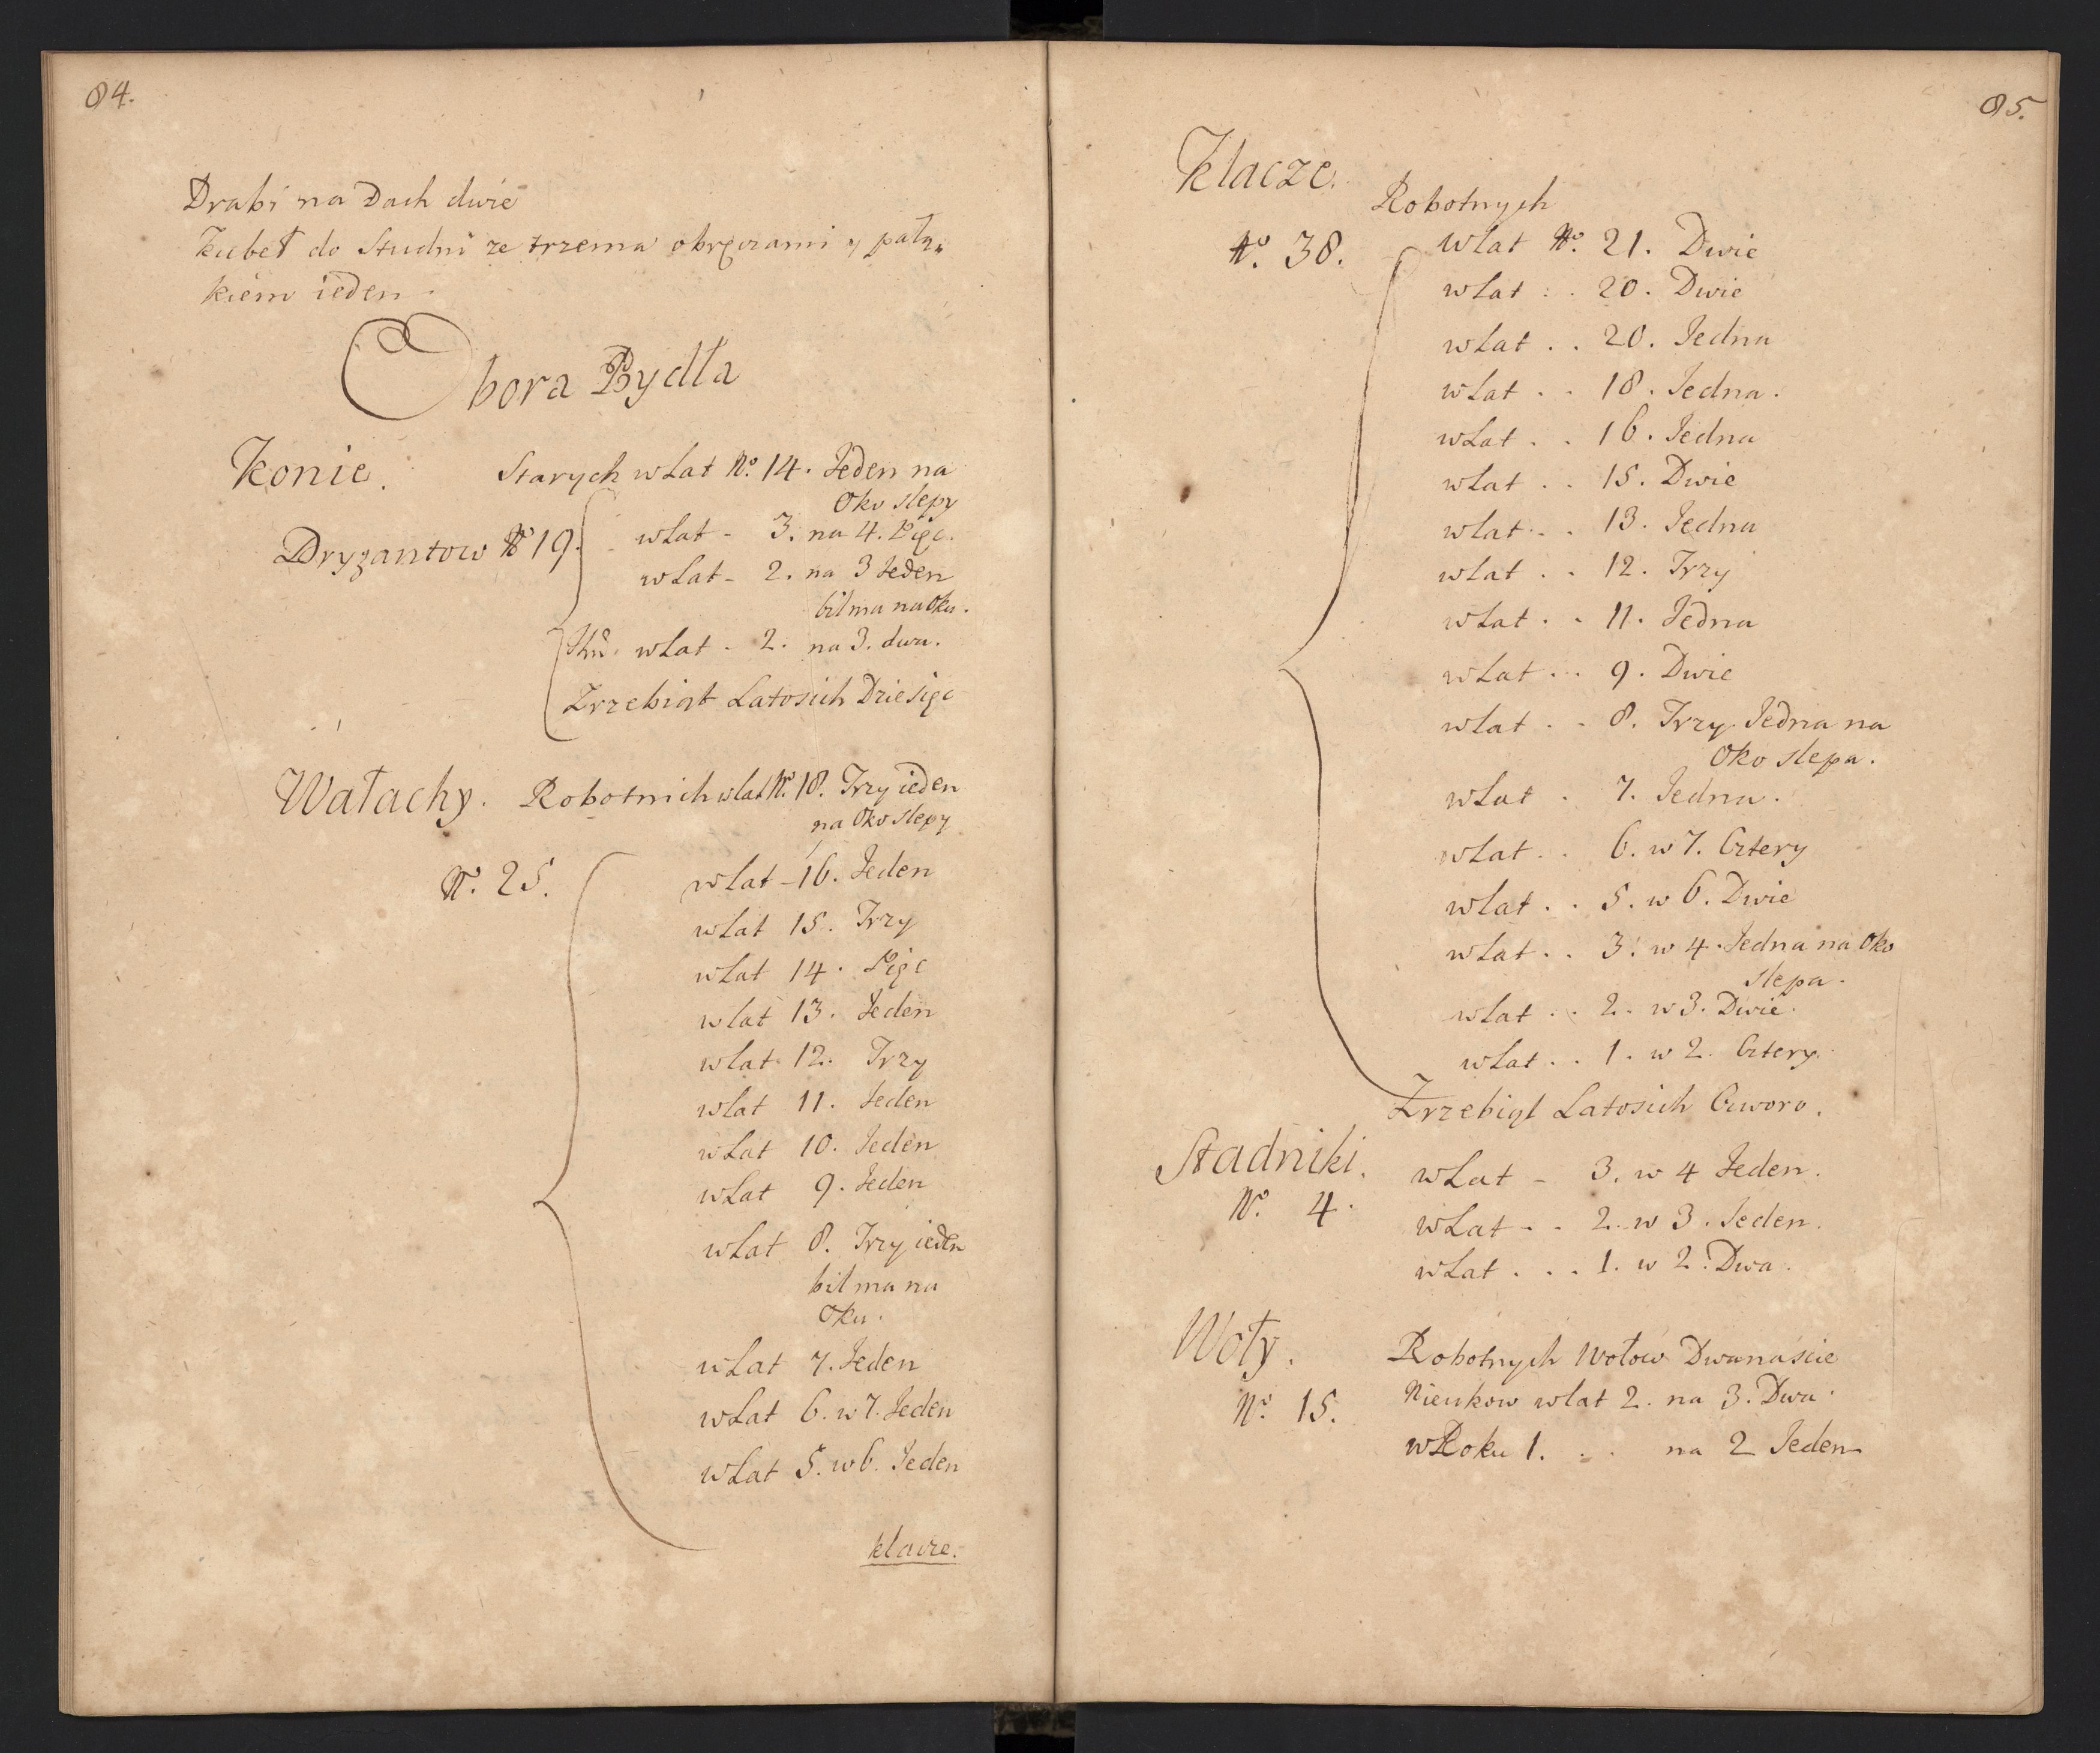 84.
Drabi na Dach dwie
Kubeł do Studni ze trzema obręczami y pałą,,
kiem ieden.
Obora Bydła
Konie. Starych w Lat No. 14. Jeden na
Oko slepy
Dryganтow No 19. w Lat - 3. na 4. Pięc.
w Lat - 2. na 3 Jeden
bilma na Oku.
w Lat - 2. na 3. dwa.
Zrzebiąt Latosich Dziesięc
Wałachy. Robotnich w lat No. 18. Trzy ieden
na Oko slepy
No. 25. w Lat - 16. Jeden
w Lat 15. Trzy
w Lat 14. Pięc
w Lat 13. Jeden
w Lat 12. Trzy
w Lat 11. Jeden
w Lat 10. Jeden
w Lat 9. Jeden
w Lat 8. Trzy ieden
bilma na
Oku.
w Lat 7. Jeden
w Lat 6. w 7. Jeden
w Lat 5. w 6. Jeden
klacze.
85.
Klacze.
Robotnych
No. 38. w Lat No. 21. Dwie
w Lat . . 20. Dwie
w Lat . . 20. Jedna
w Lat . . 18. Jedna.
w Lat . . 16. Jedna
w Lat . . 15. Dwie
w Lat . . 13. Jedna
w Lat . . 12. Trzy
w Lat . . 11. Jedna
w Lat . . 9. Dwie
w Lat . . 8. Trzy Jedna na
Oko slepa.
w Lat . 7. Jedna.
w Lat . . 6. w 7. Cztery
w Lat . . 5. w 6. Dwie
w Lat . . 3. w 4. Jedna na Oko
slepa.
w Lat . . 2. w 3. Dwie.
w Lat . . 1. w 2. Cztery.
Zrzebiąt Latosich Czworo.
Stadniki. w Lat - 3. w 4 Jeden.
No. 4. w Lat . . 2. w 3. Jeden.
w Lat . . . 1. w 2. Dwa.
Woły. Robotnych Wołow Dwanaście
No. 15. w lat 2. na 3. Dwa.
w Roku 1. . . na 2 Jeden